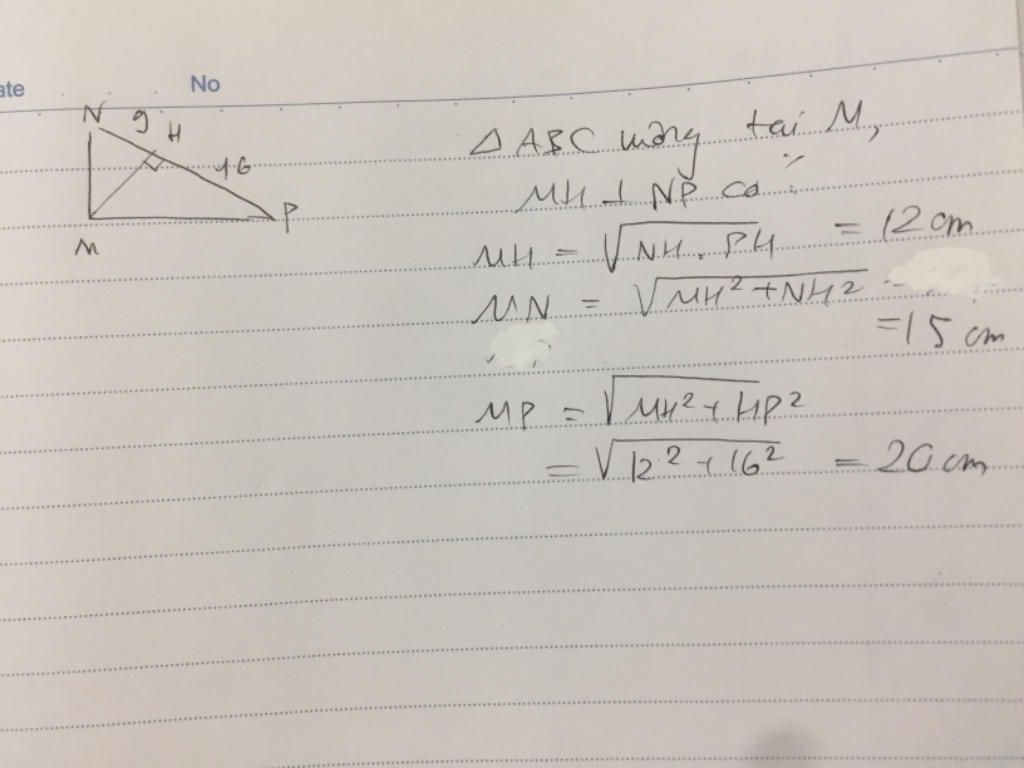 ate No
N 9 H
16
P
M
△ ABC vuông tại M,
MH ⊥ NP có :
MH = √NH . PH = 12 cm
MN = √MH² + NH²
= 15 cm
MP = √MH² + HP²
= √12² + 16² = 20 cm